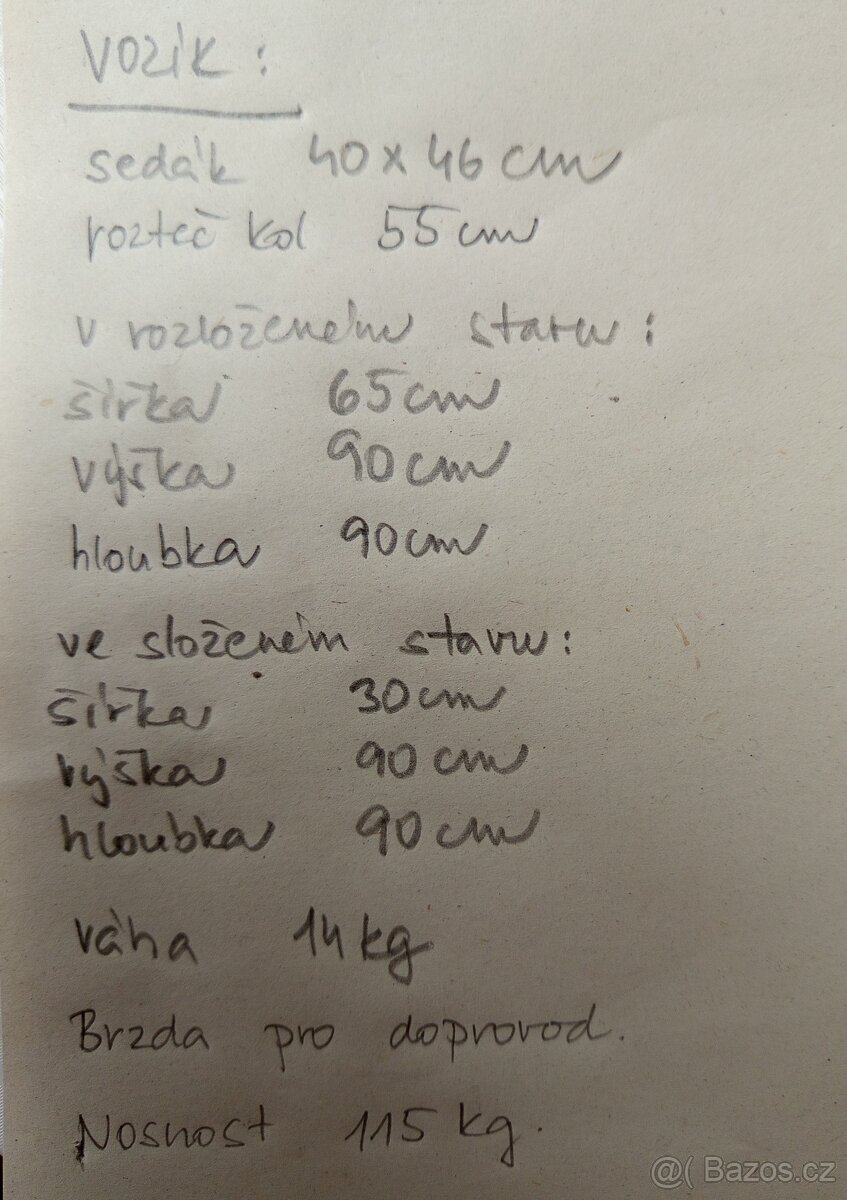 Vozík:
sedák 40 x 46 cm
rozteč kol 55 cm
v rozloženém stavu:
šířka 65 cm
výška 90 cm
hloubka 90 cm
ve složeném stavu:
šířka 30 cm
výška 90 cm
hloubka 90 cm
váha 14 kg
Brzda pro doprovod.
Nosnost 115 kg.
@( Bazos.cz